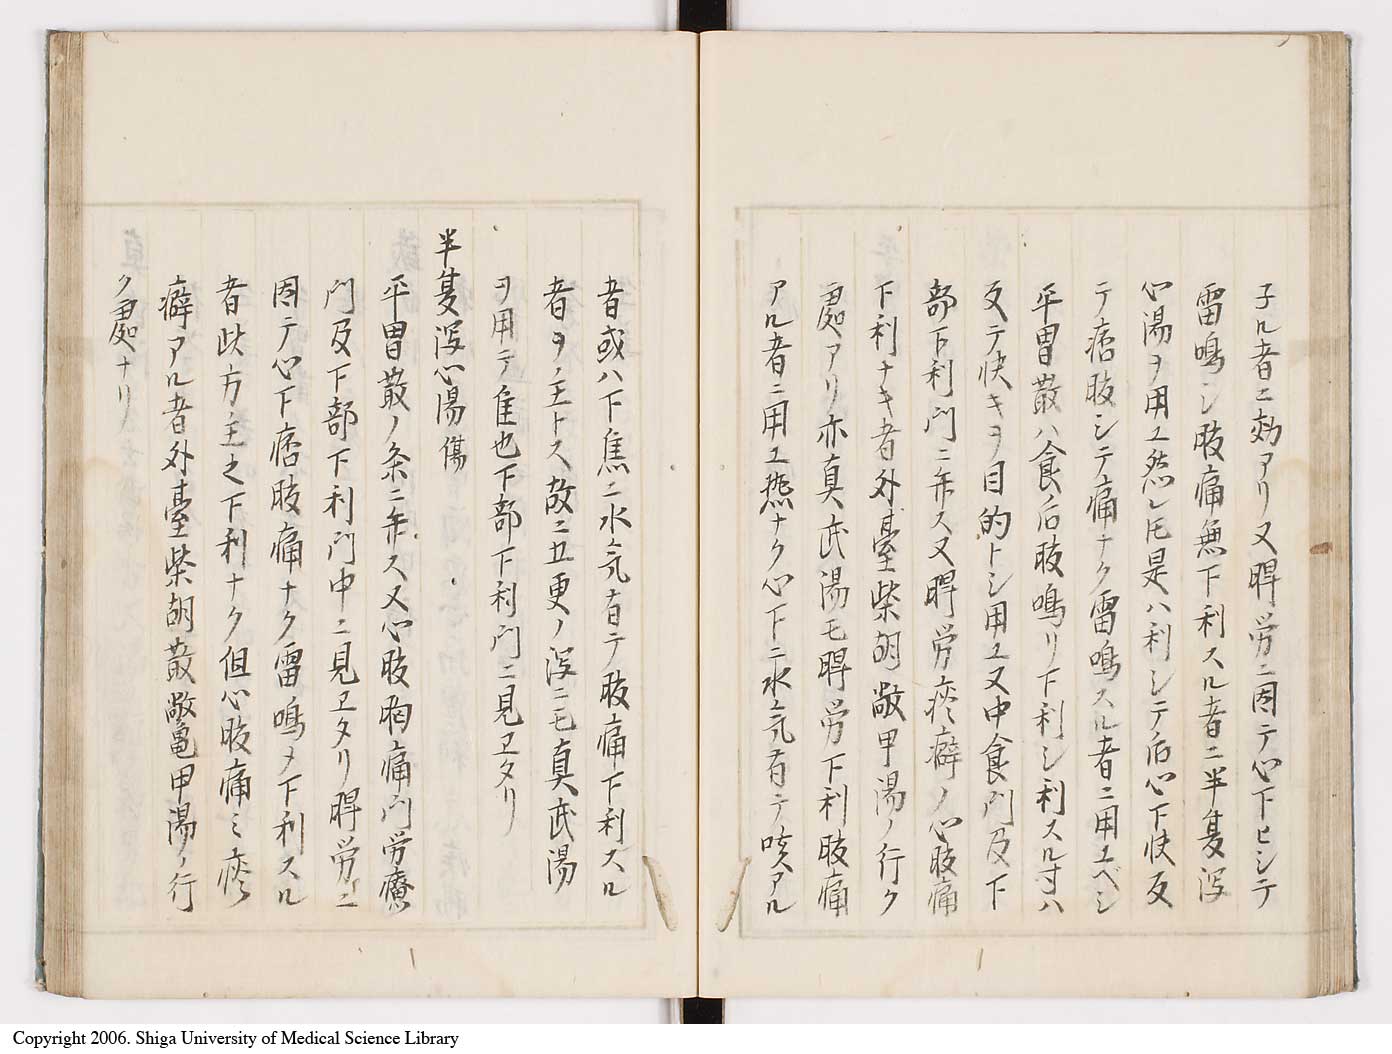 子ル者ニ効アリ又脾労ニ因テ心下ヒシテ
雷鳴シ腹痛無下利スル者ニ半夏泻
心湯ヲ用ユ然レ𪜈是ハ利シテ后心下快反
テ痞腹シテ痛ナク雷鳴スル者ニ用ユベシ
平胃散ハ食后腹鳴リ下利シ利スル寸ハ
反テ快キヲ目的トシ用ユ又中食門及下
部下利門ニ弁ス又脾労痰癖ノ心腹痛
下利ナキ者外臺柴胡鼈甲湯ノ行ク
処アリ亦真武湯モ脾労下利腹痛
アル者ニ用ユ熱ナク心下ニ水气有テ咳アル
者或ハ下焦ニ水气有テ腹痛下利スル
者ヲノ主トス故ニ五更ノ泻ニモ真武湯
ヲ用テ佳也下部下利門ニ見ヱタリ
半夏泻心湯 傷
平胃散ノ条ニ弁ス又心腹胸痛門労療
門及下部下利門中ニ見ヱタリ脾労ニ
因テ心下痞腹痛ナク雷鳴メ下利スル
者此方主之下利ナク但心腹痛ミ痰
癖アル者外臺柴胡散鼈甲湯ノ行
ク処ナリ
Copyright 2006. Shiga University of Medical Science Library